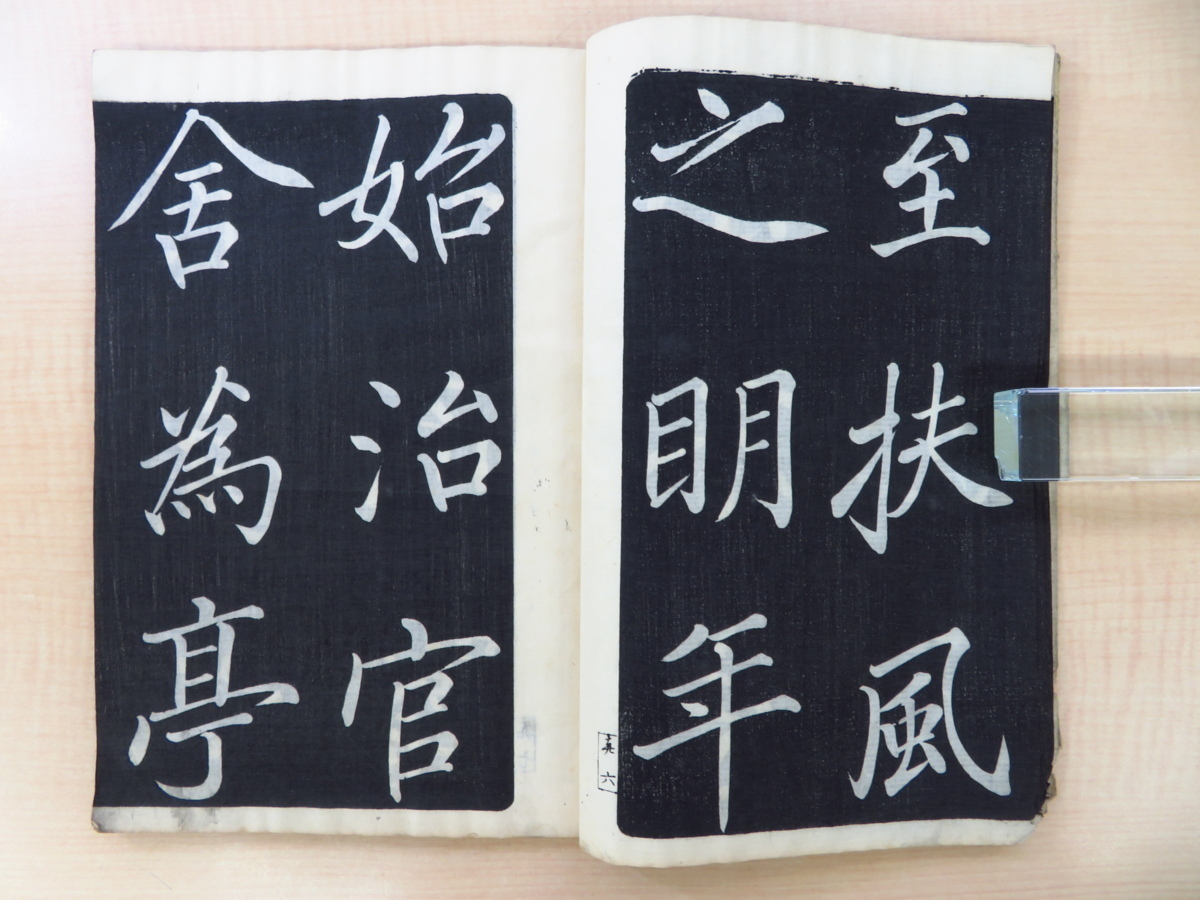 至扶風
之明年
始治官
舍為亭
六